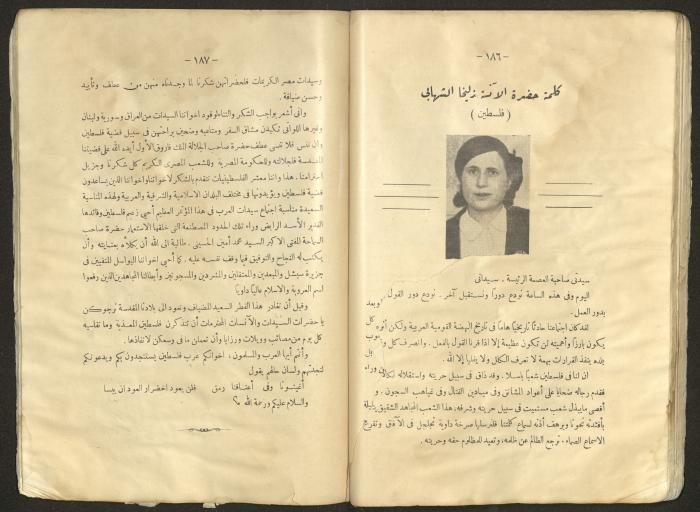 — ١٨٦ —
كلمة حضرة الآنسة زليخا الشهابي
( فلسطين )
سيدتي صاحبة العصمة الرئيسة . سيداتي
اليوم وفي هذه الساعة نودع دوراً ونستقبل آخر . نودع دور القول
بدور العمل .
لقد كان اجتماعنا حادثاً تاريخياً هاماً في تاريخ النهضة القومية العربية ولكن أثره
يكون بارزاً وأهميته لن تكون عظيمة إلا اذا قرنا القول بالعمل . وانصرف كل
بلده ينفذ القرارات بهمة لا تعرف الكلل ولا
ان لنا في فلسطين شعباً باسلا . وقد ذاق في سبيل حريته واستقلاله
فقدم رجاله ضحايا على أعواد المشانق وفي ميادين القتال وفي غياهب السجون . و
أقصى ما يبذل شعب مستميت في سبيل حريته وشرفه، هذا الشعب المجاهد الشقيق
بأفئدته نحونا ويرهف أذنه لسماع كلمتنا فلنرسلها صرخة داوية تجلجل في الآفاق وتقرع
الاسماع الصماء ، ترجع الظالم عن ظلمه، وتعيد للمظلوم حقه وحريته .
— ١٨٧ —
وسيدات مصر الكريمات فلحضراتهن شكرنا لما وجدناه منهن من عطف وتأييد
وحسن ضيافة .
واني أشعر بواجب الشكر والثناء لوفود اخواتنا السيدات من العراق وسورية ولبنان
وغيرها اللواتي تكبدن مشاق السفر ومتاعبه وضحين براحتهن في سبيل قضية فلسطين
وان ننس فلا ننسى عطف حضرة صاحب الجلالة الملك فاروق الأول أيده الله على قضيتنا
المقدسة فلجلالته وللحكومة المصرية وللشعب المصرى الكريم كل شكرنا وجزيل
احترامنا . هذا واننا معشر الفلسطينيات نتقدم بالشكر لاخواننا واخواتنا الذين يساعدون
قضية فلسطين ويؤيدونها في مختلف البلدان الاسلامية والشرقية والعربية ولهذه المناسبة
السعيدة مناسبة اجتماع سيدات العرب في هذا المؤتمر العظيم أحيي زعيم فلسطين وقائدها
القدير الأسد الرابض وراء تلك الحدود المصطنعة التي خلقها الاستعمار حضرة صاحب
السماحة المفتي الاكبر السيد محمد أمين الحسيني . طالبة الى الله أن يكلأه بعنايته وأن
يكتب له النجاح والتوفيق فيما وقف نفسه عليه . كما أحيي اخواننا البواسل المنفيين في
جزيرة سيشل والمبعدين والمعتقلين والمشردين والمسجونين وأبطالنا المجاهدين الذين رفعوا
اسم العروبة والاسلام عالياً داوياً
وقبل أن نغادر هذا القطر السعيد المضياف ونعود الى بلادنا المقدسة نرجوكن
يا حضرات السيدات والآنسات المحترمات أن تتذكرن فلسطين المعذبة وما تقاسيه
كل يوم من مصائب وويلات ورزايا وأن تعملن ما في وسعكن لانقاذها .
وأنتم أيها العرب والمسلمون ، اخوانكم عرب فلسطين يستنجدون بكم ويدعونكم
لنجدتهم ولسان حالهم يقول
أغيثونا وفى أعناقنا رمق فلن يعود اخضرار العود ان يبسا
والسلام عليكم ورحمة الله